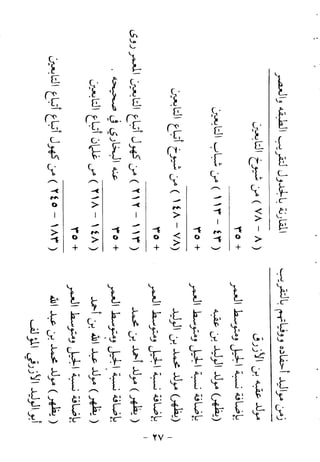 زمن مواليد أحفاده ووفياتهم بالتقريب المقارنة بالجدول لتقريب الطبقه والعصر
مولد عقبه بن الأزرق ( ٨ - ٧٨ ) من شيوخ التابعين
بإضافة نسبة الجيل ومتوسط العمر + ٣٥
(يظهر) مولد الوليد بن عقبه ( ٤٣ - ١١٣ ) من شباب التابعين
بإضافة نسبة الجيل ومتوسط العمر + ٣٥
(يظهر) مولد محمد بن الوليد ( ٧٨ - ١٤٨ ) من شيوخ أتباع التابعين
بإضافة نسبة الجيل ومتوسط العمر + ٣٥
( يظهر) مولد أحمد بن محمد ( ١١٣ - ٢١٢ ) من كهول أتباع التابعين المعمر روى
بإضافة نسبة الجيل ومتوسط العمر + ٣٥ عنه البخاري في صحيحه .
( يظهر) مولد عبد الله بن أحمد ( ١٤٨ - ٢١٨ ) من غلمان أتباع التابعين
بإضافة نسبة الجيل ومتوسط العمر + ٣٥
( يظهر) مولد محمد بن عبد الله ( ١٨٣ - ٢٤٥ ) من كهول أتباع التابعين
أبو الوليد الأزرقي المؤلف
- ٢٧ -